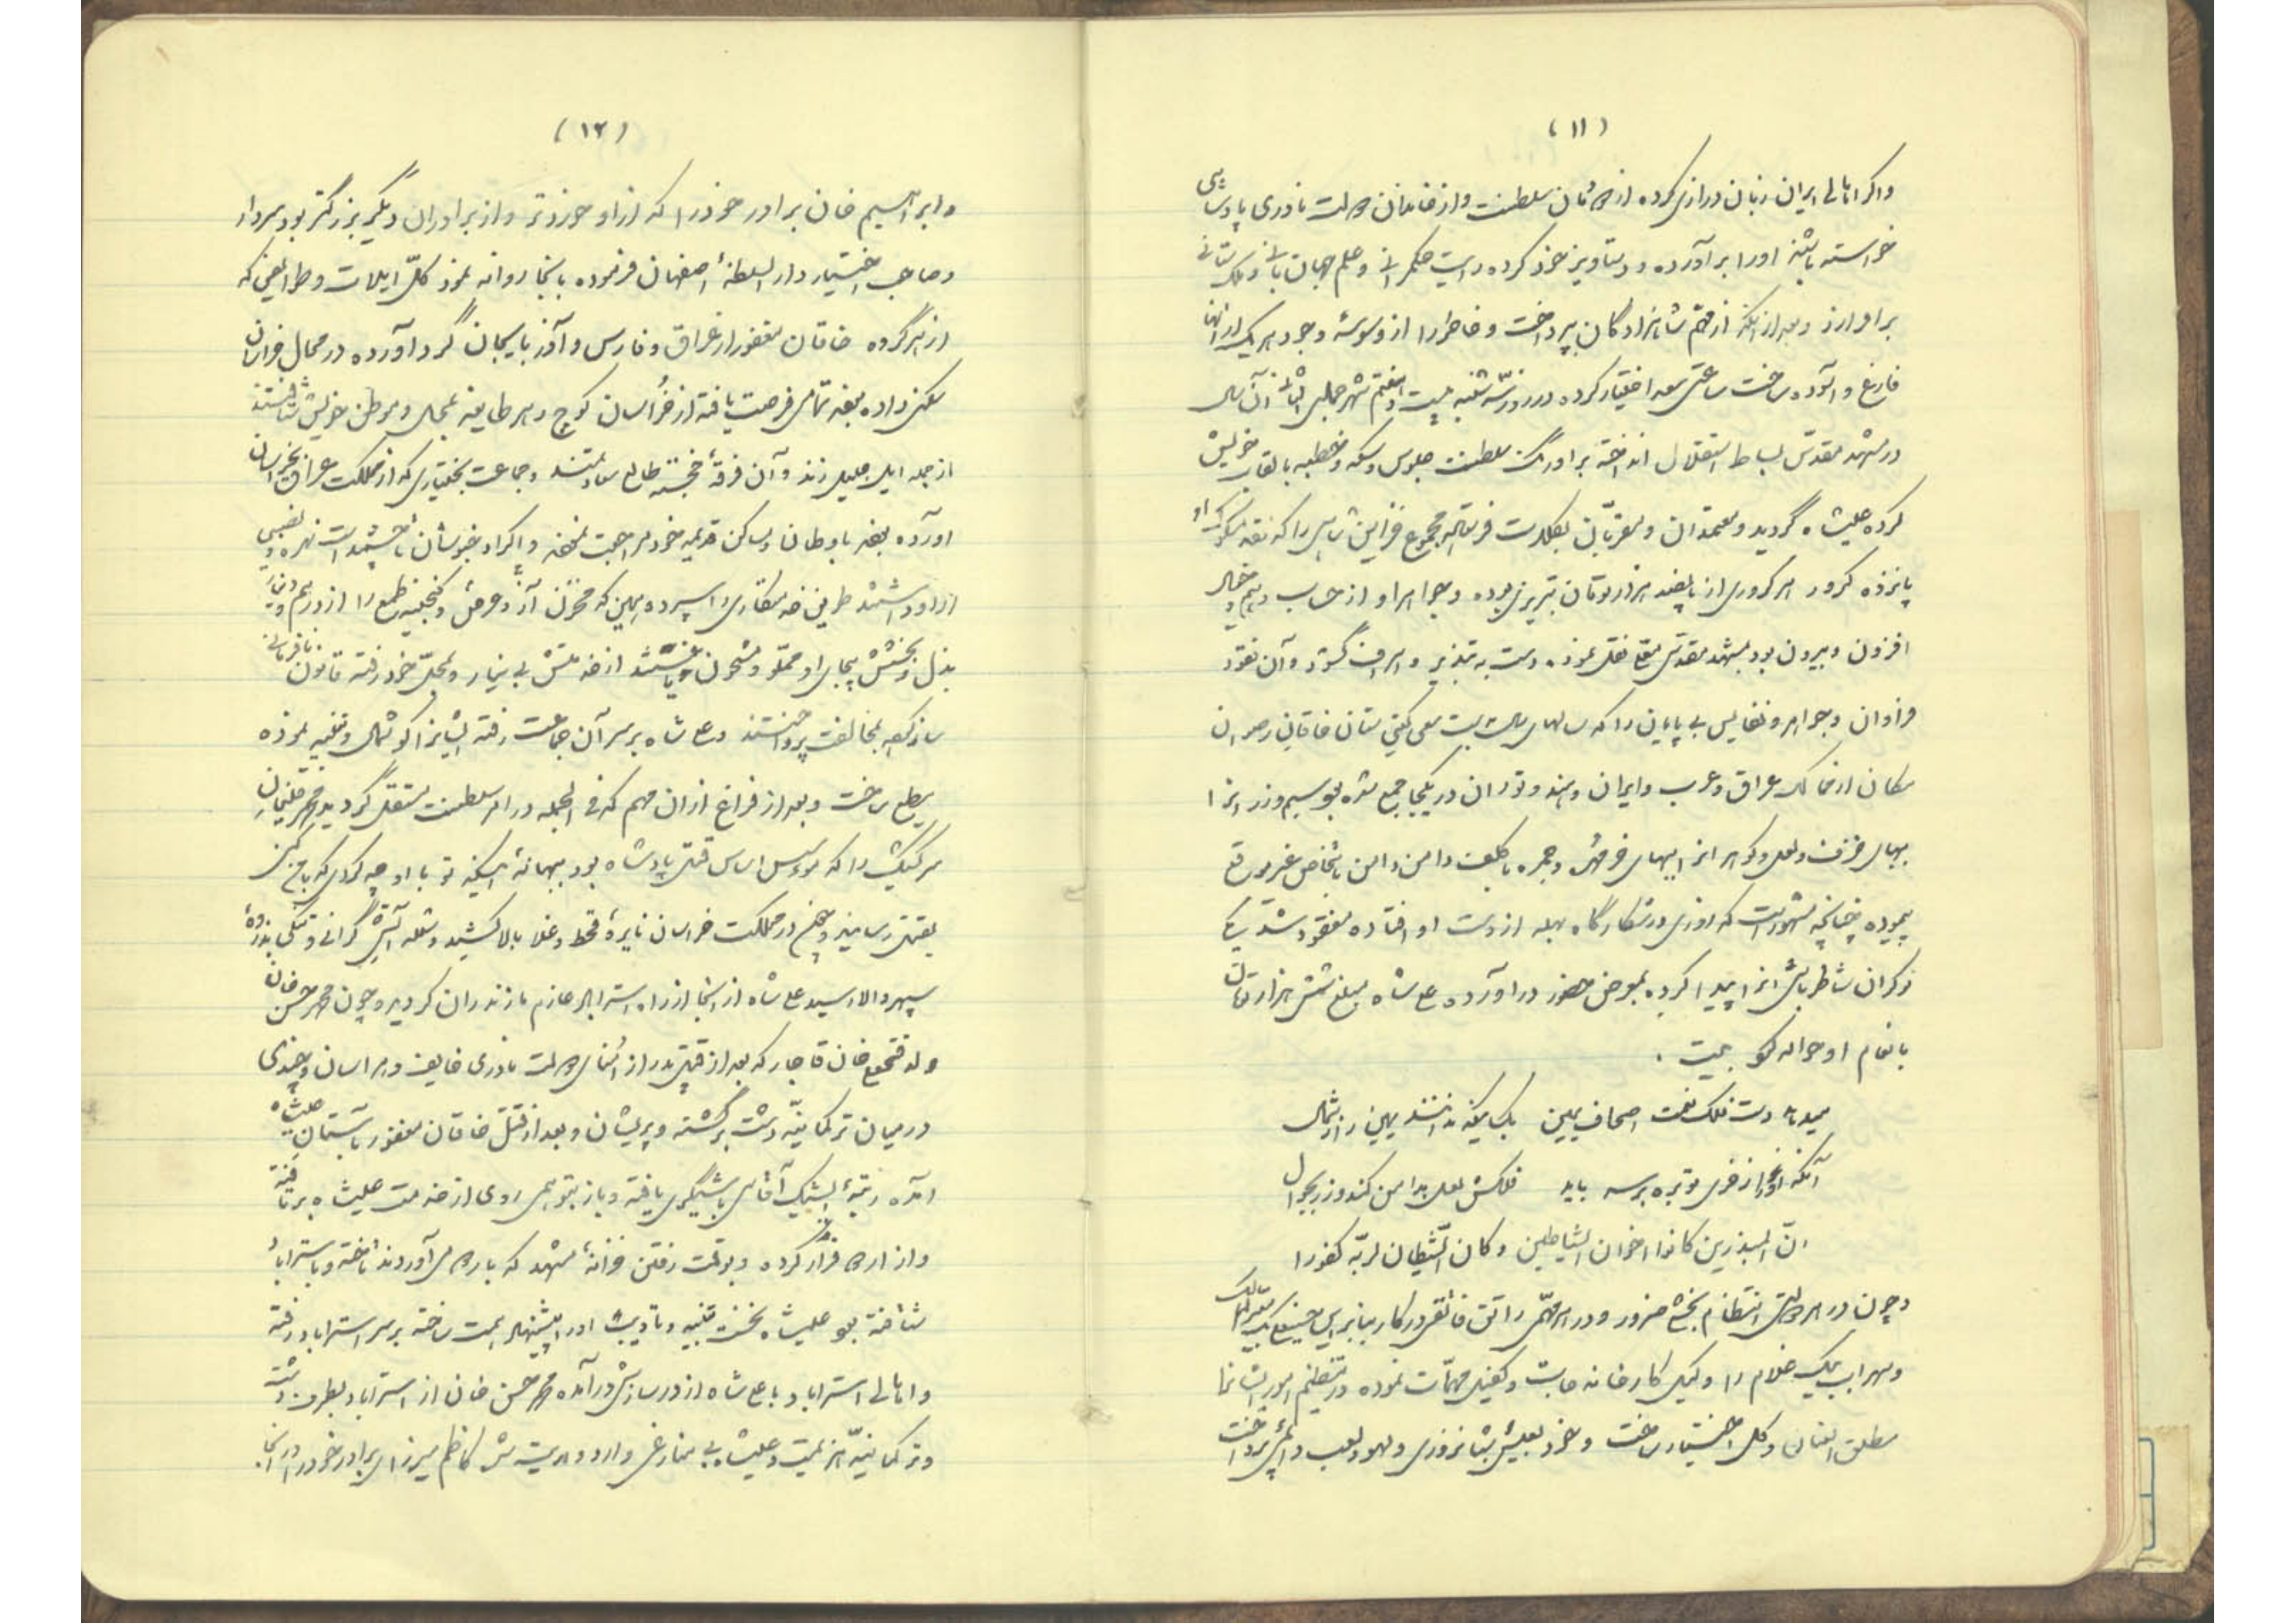 (۱۱)
واگر اهالی ایران زبان درازی کرده از دودمان سلطنت و از خاندان دولت نادری پادشاهی
خواسته باشند او را برآورده و دستاویز خود کرده رایت حکمرانی و علم جهان بانی و ملک ستانی
برافرازد و بعد از آنکه از مهم شاهزادگان پرداخت و خاطر را از وسوسهٔ وجود هریک از آنها
فارغ و آسوده ساخت ساعتی سعد اختیار کرده در روز سه شنبه بیست و هفتم شهر جمادی الثانی آن سال
در مشهد مقدس بساط استقلال انداخته بر اورنگ سلطنت جلوس و سکه و خطبه بالقاب خویش
کرده علیشاه گردید و معتمدان و مقربان بکلات فرستاده مجموع خزاین شاهی را که نقد مسکوک او
پانزده کرور هر کروری از پانصد هزار تومان تبریزی بوده و جواهر او از حساب وهم و خیال
افزون و بیرون بود بمشهد مقدس معلی نقل نموده دست به تبذیر و اسراف گشود و آن نقود
فراوان و جواهر و نفایس بی پایان را که سالهای سال بسعی گیتی ستان خاقان رضوان
مکان از ممالک عراق و عرب و ایران و هند و توران در یکجا جمع شده بود سیم و زر را
ببهای خزف و لعل و گوهر را ببهای خرمهره و جمره با کلفت دامن دامن باشخاص غیر موقع
پیموده چنانچه مشهور است که روزی در شکارگاه بهله از دست او افتاده مفقود شد یکی
نوکران شاطرباشی آنرا پیدا کرده بمعرض حضور درآورده علی شاه مبلغ شش هزار تومان
بانعام او حواله نمود بیت .
میدهد دست فلک نعمت اصحاب یمین بکسانیکه ندانند یمین را ز شمال
آنکه او را ز خری توبره بر سر باید فلکش لعل بدامن کند و زر بجوال
ان المبذرین کانوا اخوان الشیاطین و کان الشیطان لربه کفورا
و چون در هر دولتی انتظام بخشی ضرور و در هر مهمی راتق فاتقی در کار بنابراین حسنعلی بیک معیرالممالک
و سهراب بیک غلام را وکیل کارخانه جات و کفیل مهمات نموده در تنظیم امور ایشانرا
مطلق العنان و کل اختیار ساخت و خود بعیش شبانه روزی و لهو و لعب دایمی پرداخت
(۱۲)
و ابراهیم خان برادر خود را که از او خوردتر و از برادران دیگر بزرگتر بود سردار
و صاحب اختیار دارالسلطنهٔ اصفهان فرموده بآنجا روانه نمود کل ایلات و طوایفی که
از هر گروه خاقان مغفور از عراق و فارس و آذربایجان گرد آورده در محال خراسان
سکنی داده بود تمامی فرصت یافته از خراسان کوچ و هر طایفه بمحال و موطن خویش شتافتند
از جمله ایل جلیل زند و آن فرقهٔ خجسته طالع سعادتمند و جماعت بختیاری که از مملکت عراق بخراسان
آورده بود باوطان و مساکن قدیمیه خود مراجعت نمودند و اکراد خبوشان تا چشمداشت بهره و نصیبی
از او داشتند طریق خدمتکاری را سپرده همین که مخزن آز و عرض و گنجینه طمع را از درهم و دنانیر
بذل و بخشش بیجای او مملو و مشحون یافتند از خدمتش بی نیاز و بمحل خود رفته قانون نافرمانی
ساز کرده بمخالفت پرداختند و علی شاه بر سر آن جماعت رفته ایشانرا گوشمال و تنبیه نموده
مطیع ساخت و بعد از فراغ از آن مهم که فی الجمله در امر سلطنت مستقل گردید محمد قلیخان
سرکشیک را که موسس اساس قتل پادشاه بود ببهانهٔ اینکه تو با او چه کردی که با من کنی
بقتل رسانید و چون در مملکت خراسان نایرهٔ قحط و غلا بالا کشید و شعله آتش گرانی و تنگی بذروهٔ
سپهر والا رسید علی شاه از آنجا از راه استراباد عازم مازندران گردید و چون محمد حسن خان
ولد فتحعلی خان قاجار که بعد از قتل پدر از اثنای دولت نادری خایف و هراسان و چندی
در میان ترکمانیه دشت برگشته و پریشان و بعد از قتل خاقان مغفور بآستان علیشاه
آمده رتبهٔ ایشیک آقاسی باشیگری یافته و باز بتوهمی روی از خدمت علیشاه برتافته
و از اردو فرار کرده و بوقت رفتن خزانهٔ مشهد که باردو می آوردند تاخته و باستراباد
شتافته بود علیشاه نخست تنبیه و تادیب او را پیشنهاد همت ساخته بر سر استراباد رفته
و اهالی استراباد با علی شاه از در سازش درآمده محمد حسن خان از استراباد بطرف دشت
و ترکمانیه هزیمت و علیشاه بی منازعی وارد و مدت شش ماه کاظم میرزای برادر خود را در آنجا